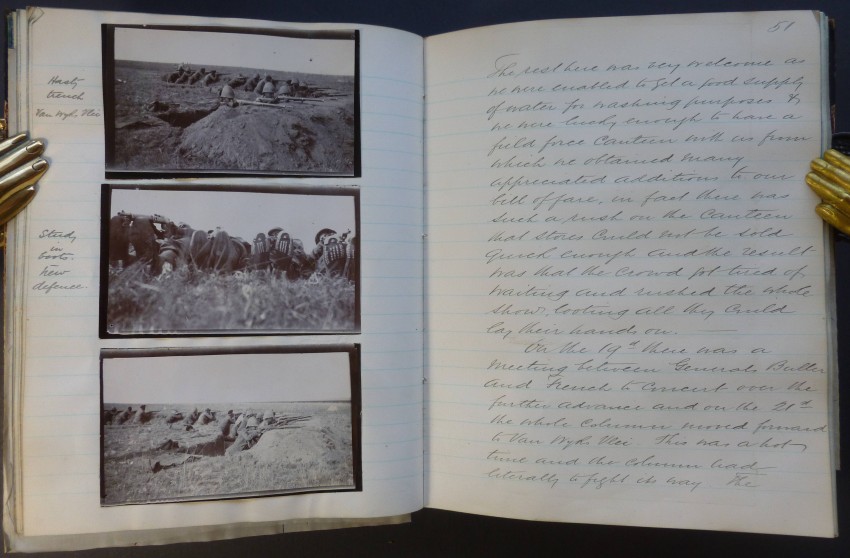 Hasty
trench
Van Wyks Vlei
Study
in
boots.
New
defence.
51
The rest here was very welcome as
we were enabled to get a good supply
of water for washing purposes &
we were lucky enough to have a
field force Canteen with us from
which we obtained many
appreciated additions to our
bill of fare, in fact there was
such a rush on the Canteen
that stores could not be sold
quick enough and the result
was that the crowd got tired of
waiting and rushed the whole
show, looting all they could
lay their hands on.
On the 19th there was a
meeting between Generals Buller
and French to concert over the
further advance and on the 21st
the whole column moved forward
to Van Wyks Vlei This was a hot
time and the column had
literally to fight its way The